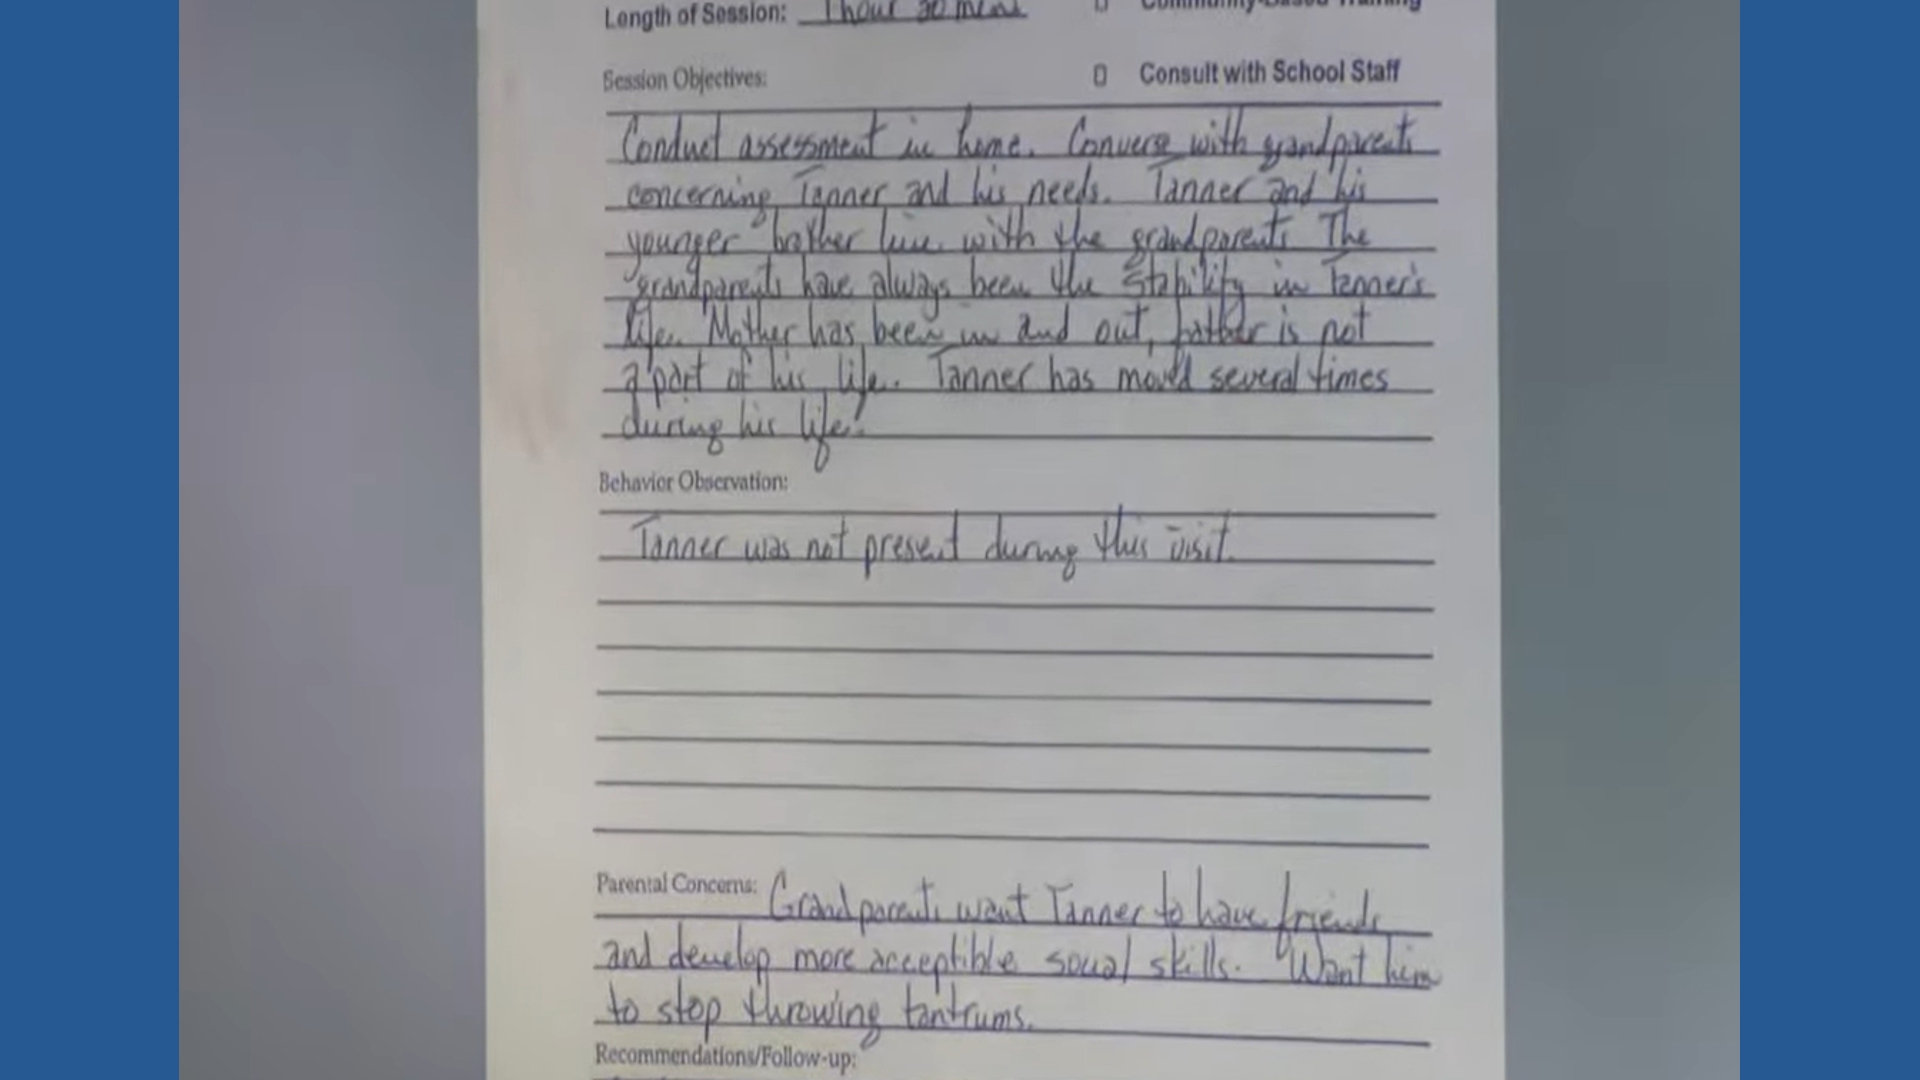 Length of Session: 1 hour 30 mins
Community-Based Training
Session Objectives:
Consult with School Staff
Conduct assessment in home. Converse with grandparents
concerning Tanner and his needs. Tanner and his
younger brother live with the grandparents. The
grandparents have always been the stability in Tanner's
life. Mother has been in and out, father is not
a part of his life. Tanner has moved several times
during his life.
Behavior Observation:
Tanner was not present during this visit.
Parental Concerns: Grandparents want Tanner to have friends
and develop more acceptible social skills. Want him
to stop throwing tantrums.
Recommendations/Follow-up: